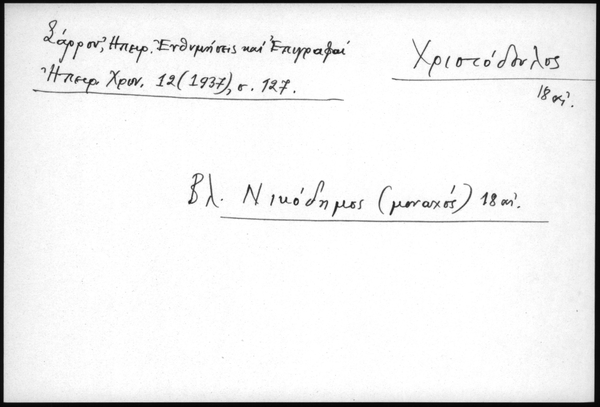 Σάρρου, Ἠπειρ. Ἐνθυμήσεις καὶ Ἐπιγραφαὶ
Ἠπειρ. Χρον. 12 (1937), σ. 127.
Χριστόδουλος
18 αἰ.
Βλ. Νικόδημος (μοναχός) 18 αἰ.